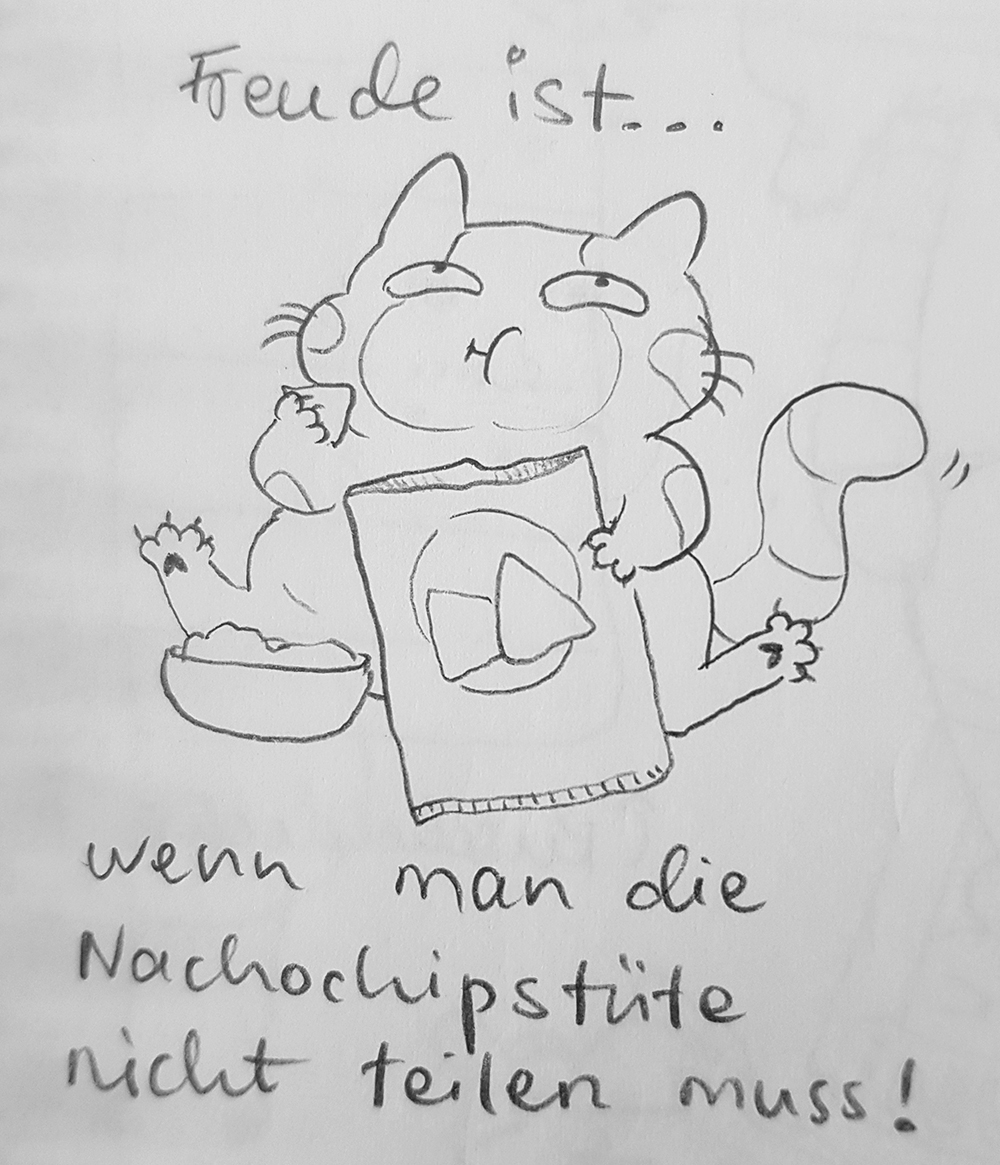 Freude ist...
wenn man die
Nachochipstüte
nicht teilen muss!